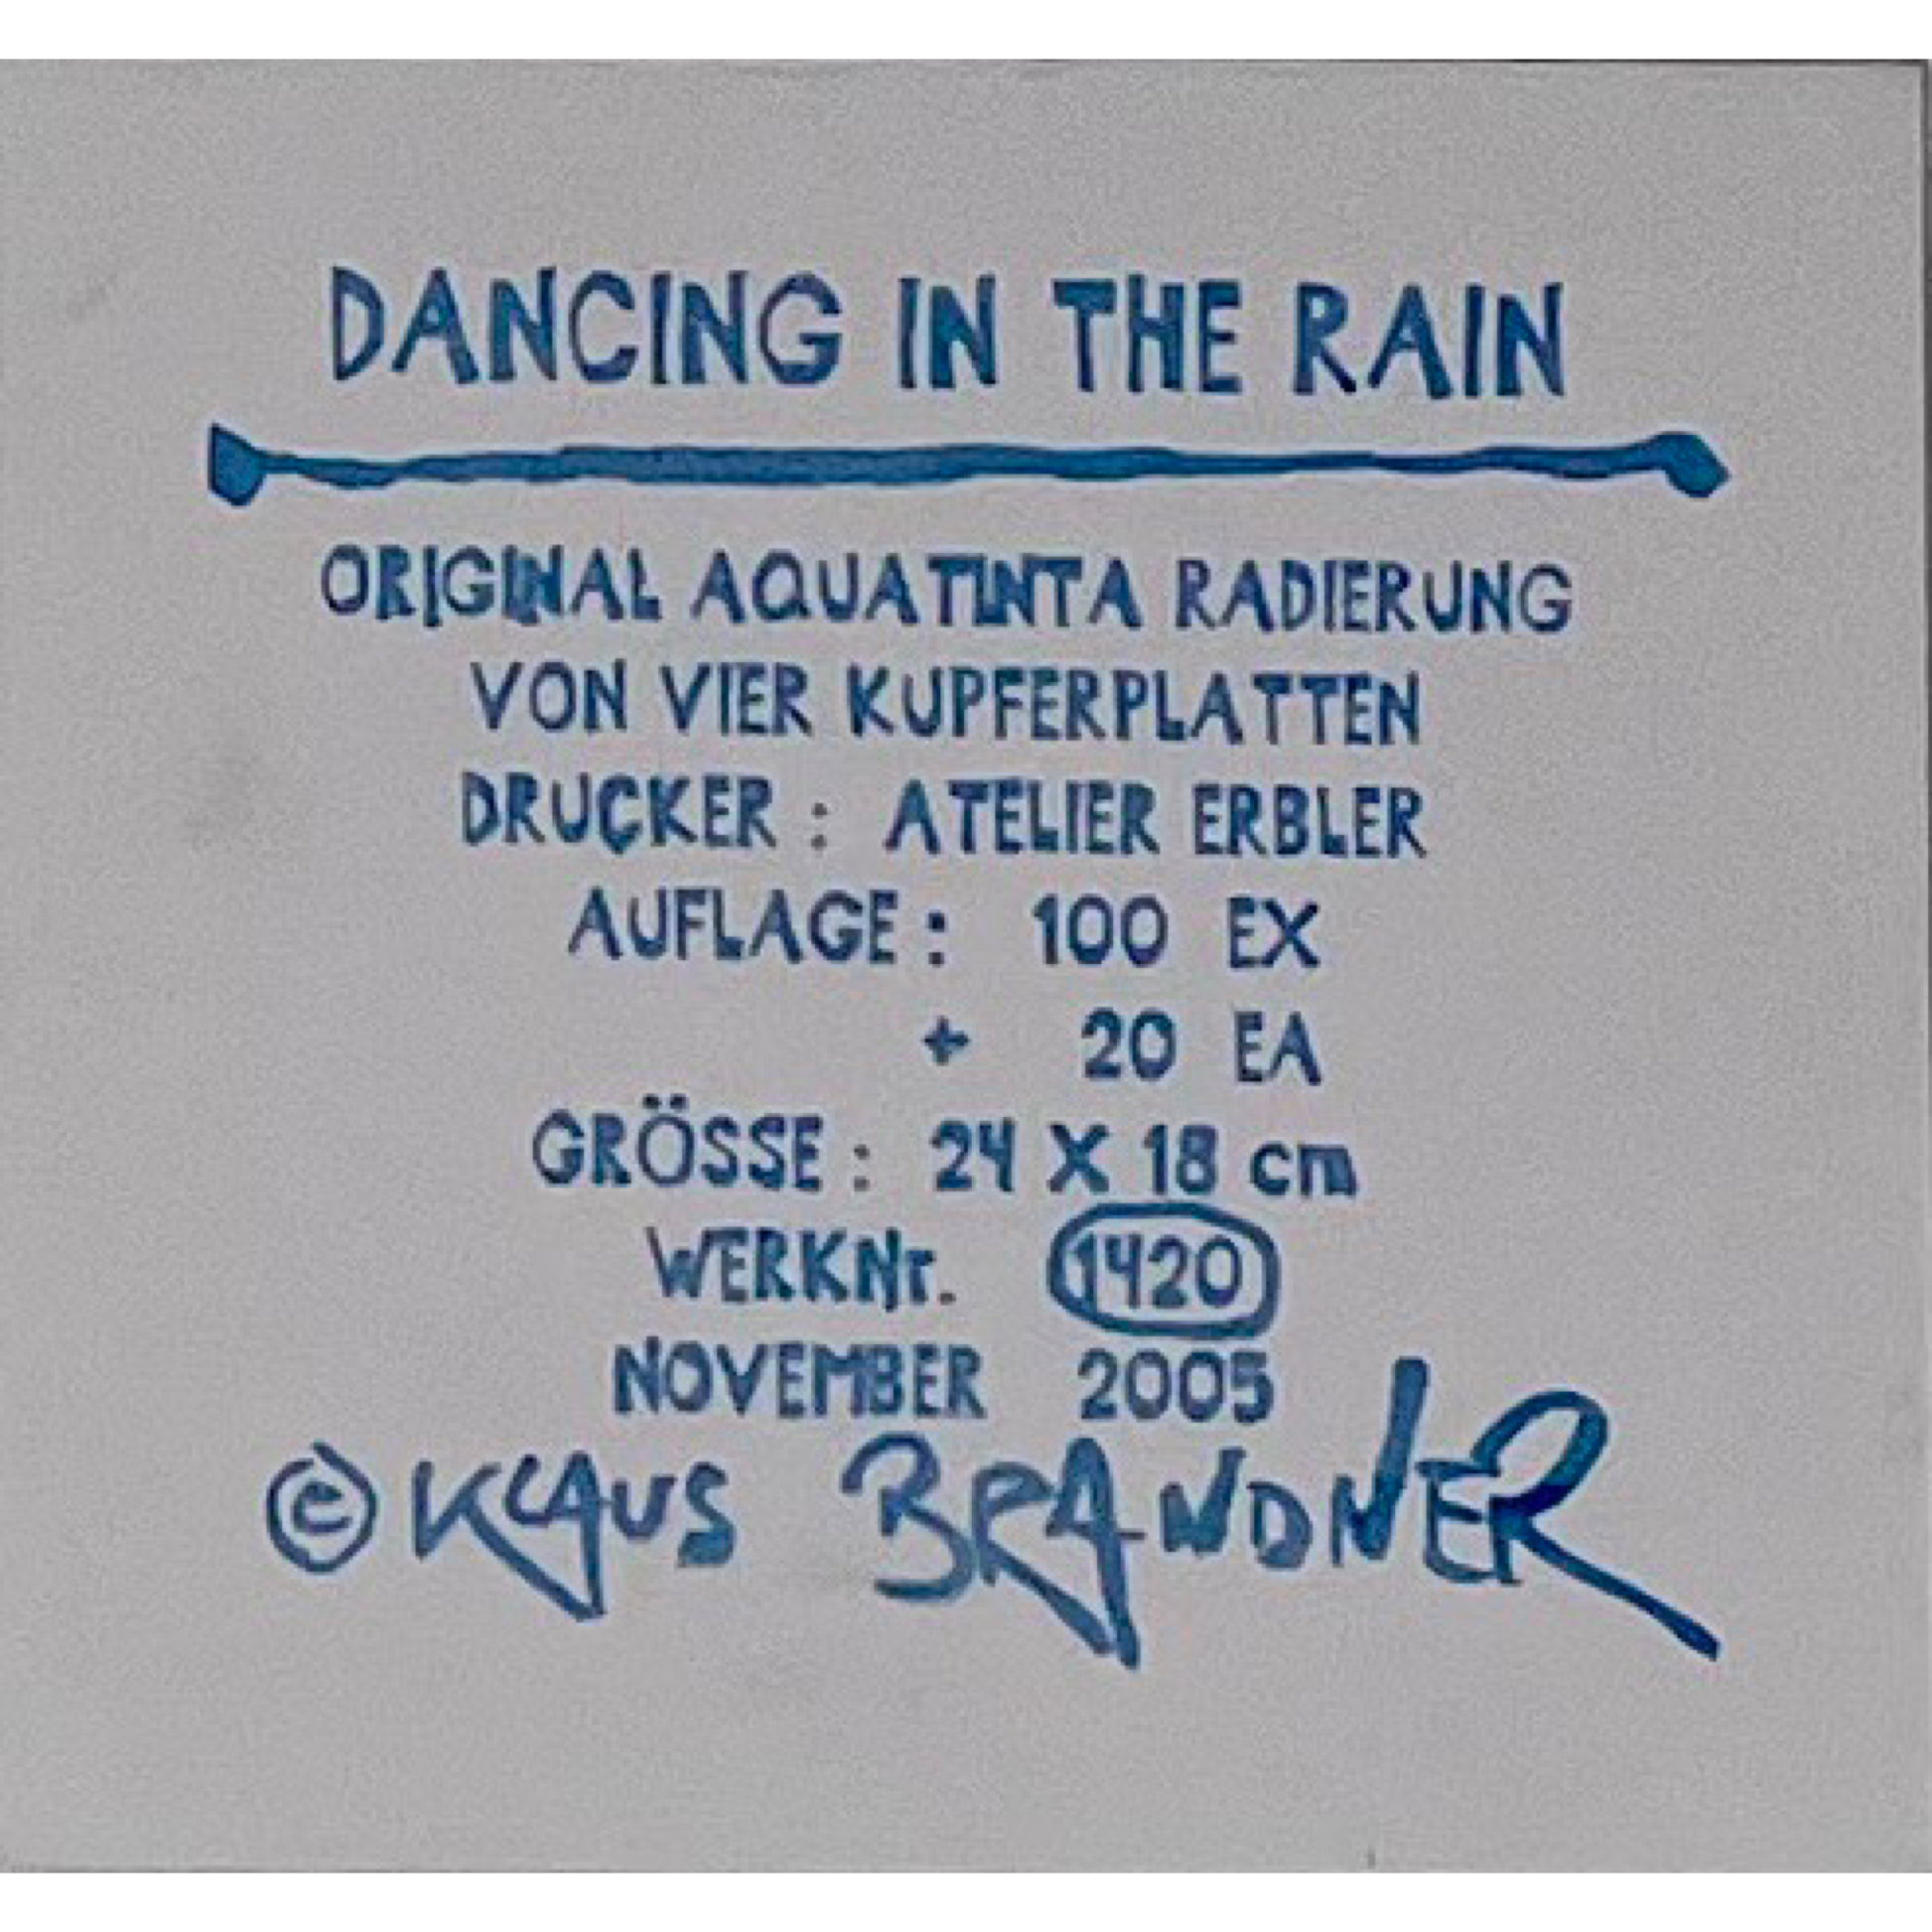 DANCING IN THE RAIN
ORIGINAL AQUATINTA RADIERUNG
VON VIER KUPFERPLATTEN
DRUCKER : ATELIER ERBLER
AUFLAGE : 100 EX
+ 20 EA
GRÖSSE : 24 X 18 cm
WERKNr. 1420
NOVEMBER 2005
© KLAUS BRANDNER